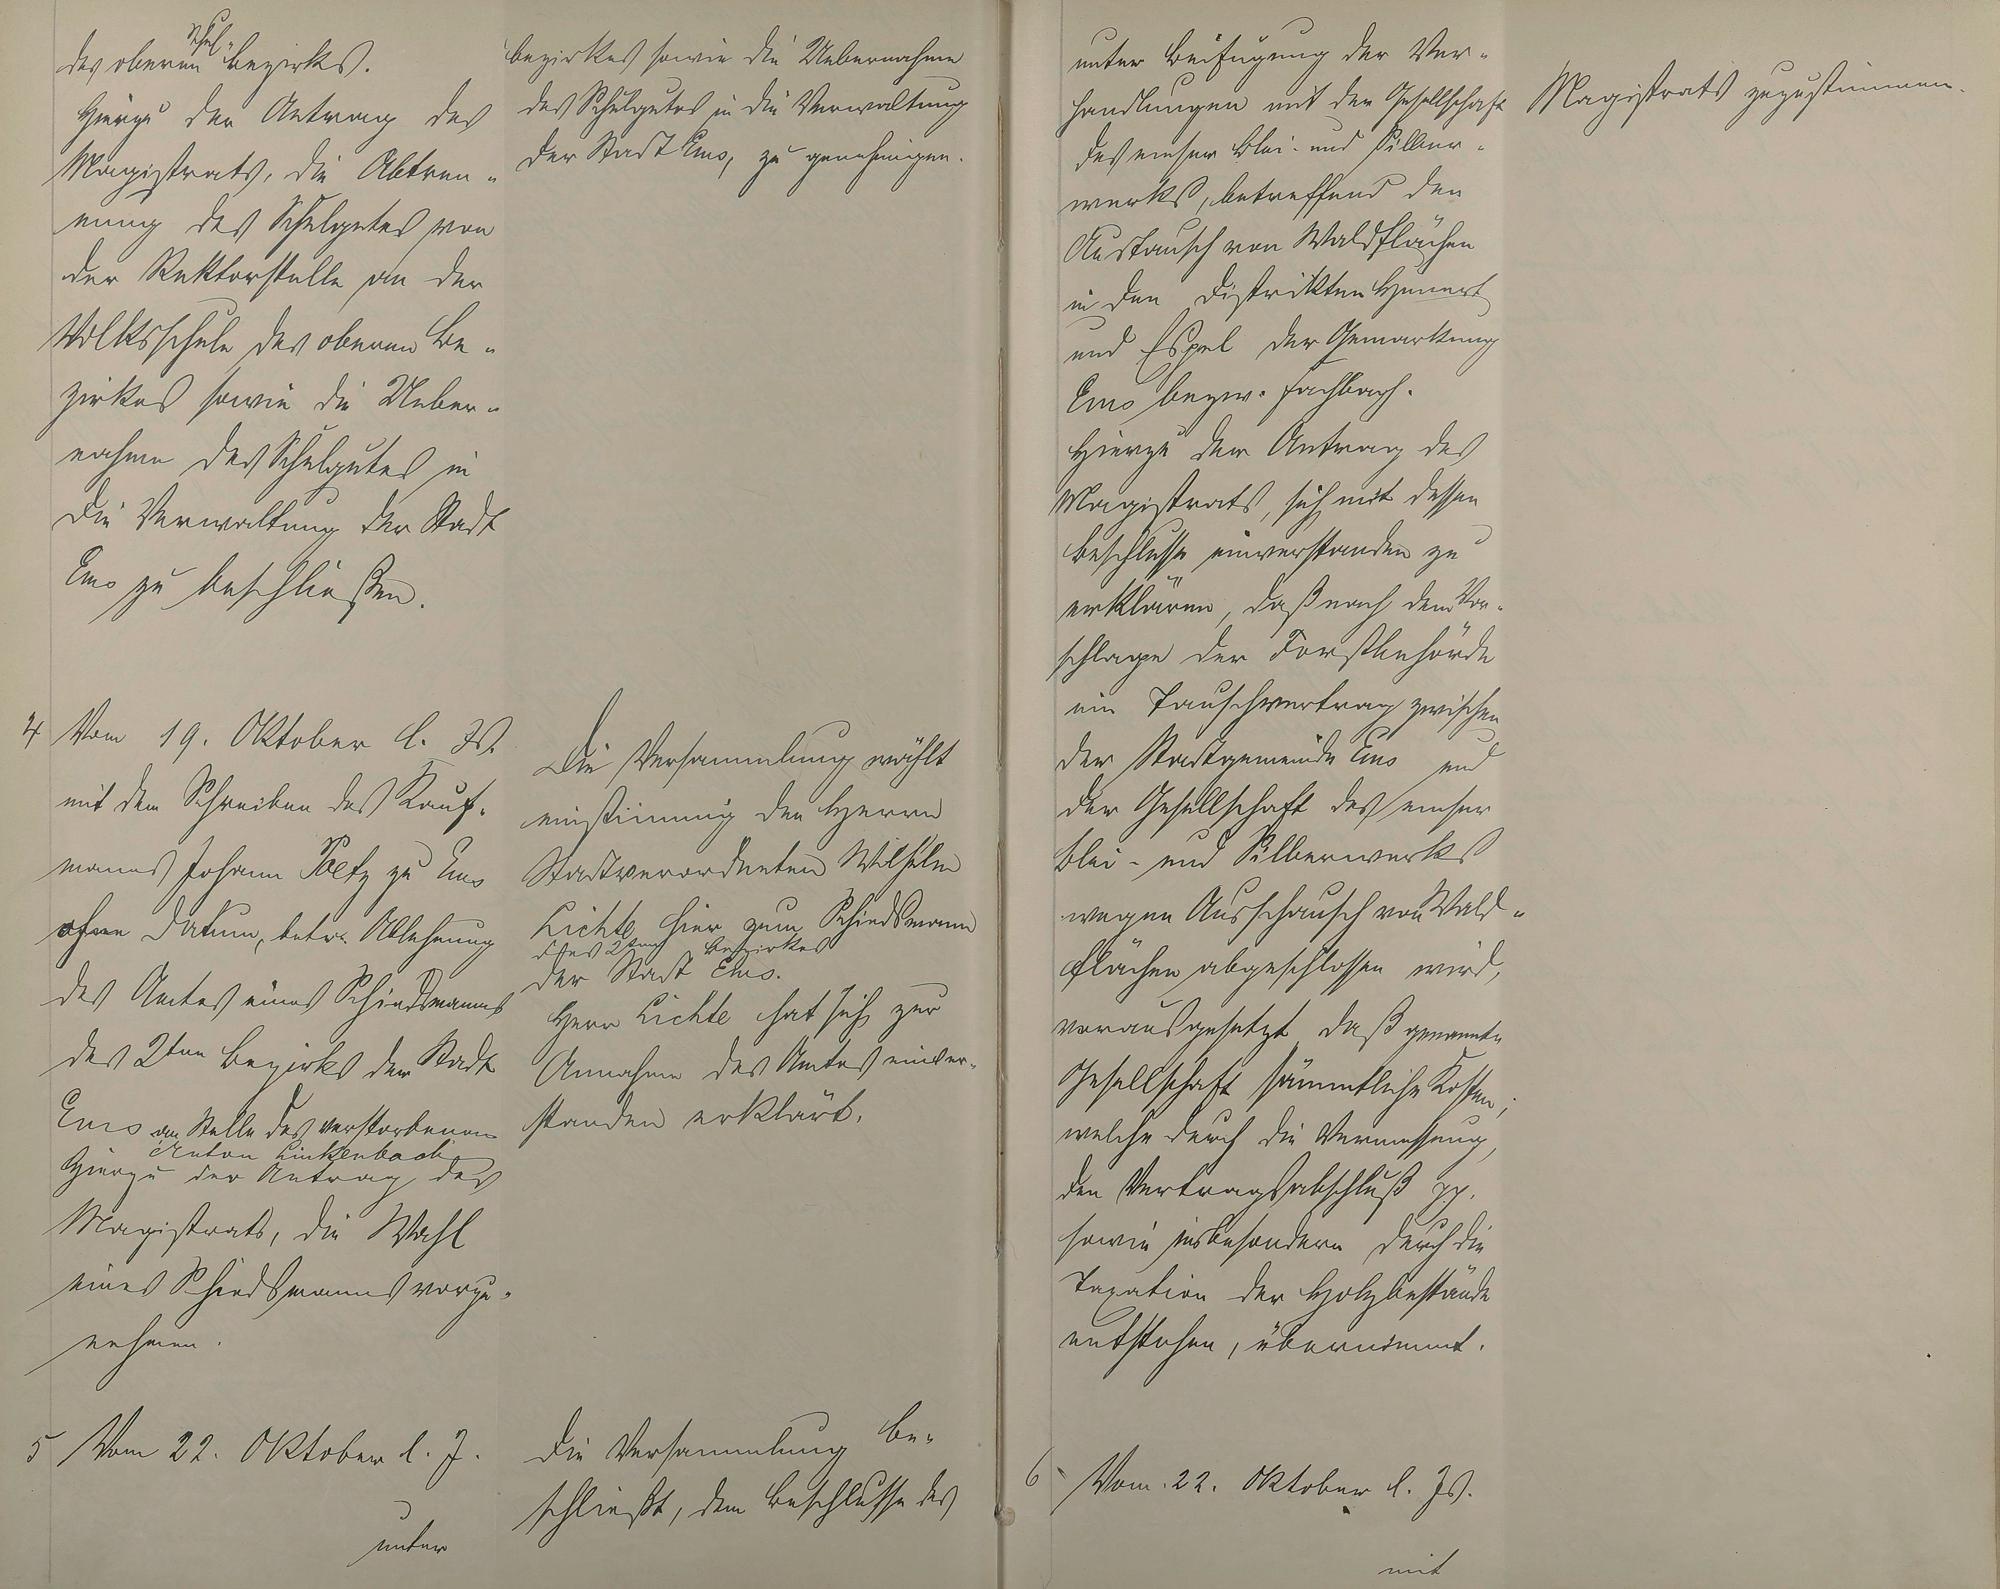 des oberen Schul-bezirks.
Hierzu der Antrag des
Magistrats, die Abtren-
nung des Schulgutes von
der Rektorstelle an der
Volksschule des oberen Be-
zirkes sowie die Ueber-
nahme des Schulgutes in
die Verwaltung der Stadt
Ems zu beschließen.
4 Vom 19. Oktober l. Js.
mit dem Schreiben des Kauf-
manns Johann Peltz zu Ems
ohne Datum, betr. Ablehnung
des Amtes eines Schiedsmanns
des 2ten Bezirks der Stadt
Ems an Stelle des verstorbenen
Anton Linkenbach
Hierzu der Antrag des
Magistrats, die Wahl
eines Schiedsmanns vorzu-
nehmen.
5 Vom 22. Oktober l. J.
unter
bezirkes sowie die Uebernahme
des Schulgutes in die Verwaltung
der Stadt Ems, zu genehmigen.
Die Versammlung wählt
einstimmig den Herrn
Stadtverordneten Wilhelm
Lichte hier zum Schiedsmann
des 2ten Bezirkes
der Stadt Ems.
Herr Lichte hat sich zur
Annahme des Amtes einver-
standen erklärt.
Die Versammlung be-
schließt, dem Beschlusse des
unter Beifügung der Ver-
handlungen mit der Gesellschaft
des emser Blei- und Silber-
werks, betreffend den
Austausch von Waldflächen
in den Distrikten Hunert
und Espel der Gemarkung
Ems bezw. Fachbach.
Hierzu der Antrag des
Magistrats, sich mit dessen
Beschlusse einverstanden zu
erklären, daß nach dem Vor-
schlage der Forstbehörde
ein Tauschvertrag zwischen
der Stadtgemeinde Ems und
der Gesellschaft des emser
Blei- und Silberwerks
wegen Ausschausch von Wald-
flächen abgeschlossen wird,
vorausgesetzt daß genannte
Gesellschaft sämmtliche Kosten,
welche durch die Vermessung,
den Vertragsabschluß pp.
sowie insbesondere durch die
Taxation der Holzbestände
entstehen, übernimmt.
6 Vom 22. Oktober l. Js.
mit
Magistrats zuzustimmen.